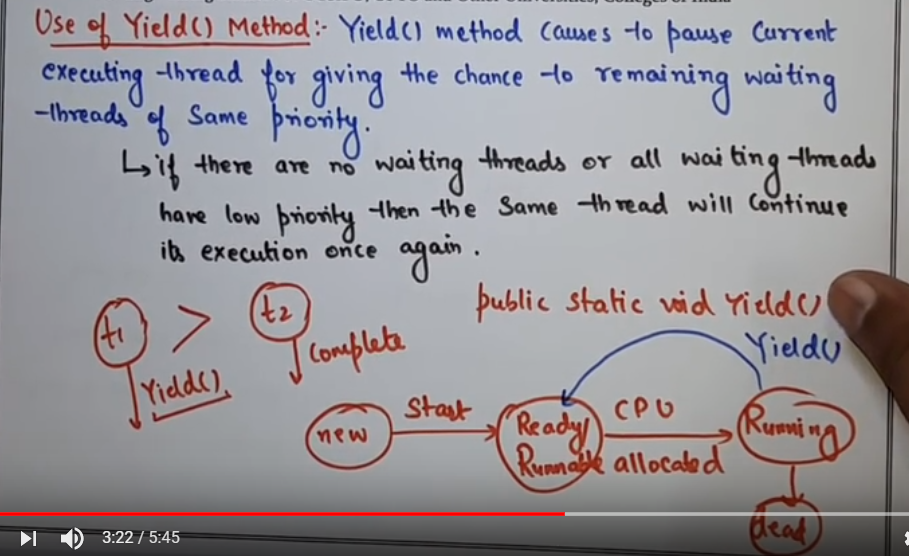 Use of Yield() Method:- Yield() method Causes to pause Current
executing thread for giving the chance to remaining waiting
threads of Same priority.
↳ if there are no waiting threads or all waiting threads
have low priority then the Same thread will Continue
its execution once again.
t1 > t2
public static void Yield()
Yield()
Complete
Yield()
new
Start
Ready/
Runnable
CPU
allocated
Running
dead
3:22 / 5:45